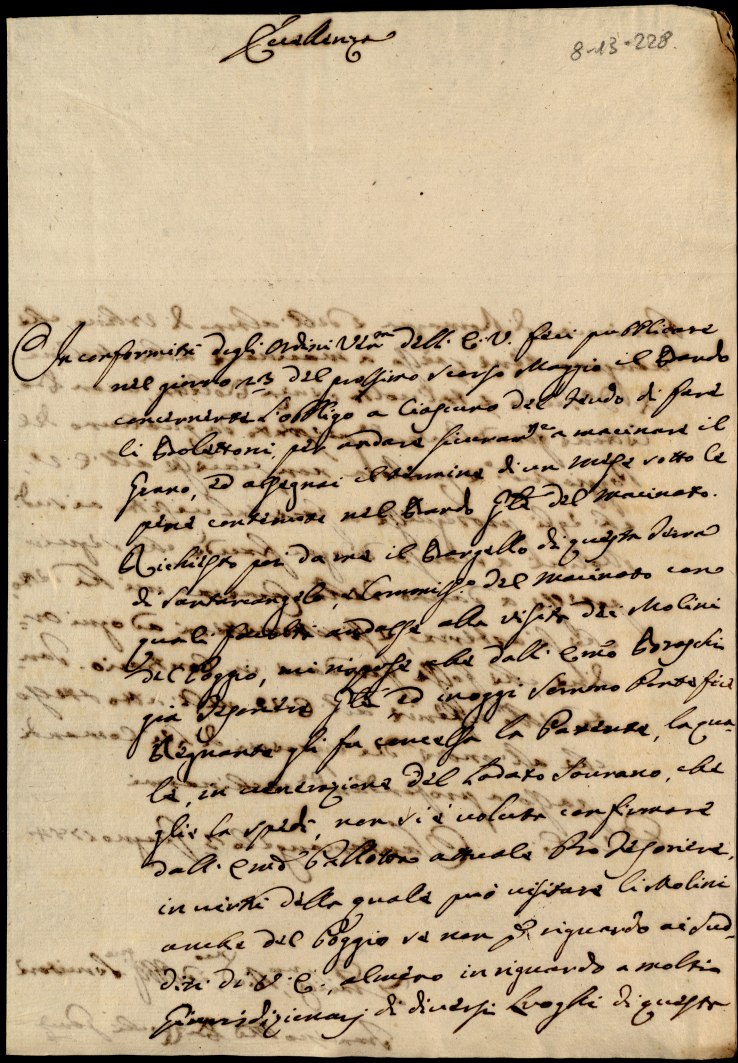 Eccellenza
8-13-228.
In conformità degli Ordini Ven.mi dell'E.V. feci pubblicare
nel giorno 23 del prossimo scorso Maggio il Bando
concernente l'obbligo a Ciascuno del Feudo di fare
li Bolettoni, per andare a macinare il
Grano, ed assegnai il termine di un mese sotto le
pene contenute nel Bando Gñle del Macinato.
Richiesto poi da me il Bargello di questa Terra
di Santarcangelo, e Commiss.o del Macinato con
quali facoltà andasse alla visita dei Molini
del Poggio, mi rispose che dall'Emo Braschi
già Tesoriere Gñle ed in oggi Sommo Pontefice
Regnante gli fu concessa la Patente, la qua-
le, in venerazione del Lodato Sovrano, che
glie la spedì, non si è voluta confirmare
dall'Emo Pallotta attuale Pro Tesoriere,
in virtù della quale può visitare li Molini
anche del Poggio se non p riguardo ai Sud-
diti di V.E., almeno in riguardo a molti
Giurisdizionarj di diversi Luoghi di questa